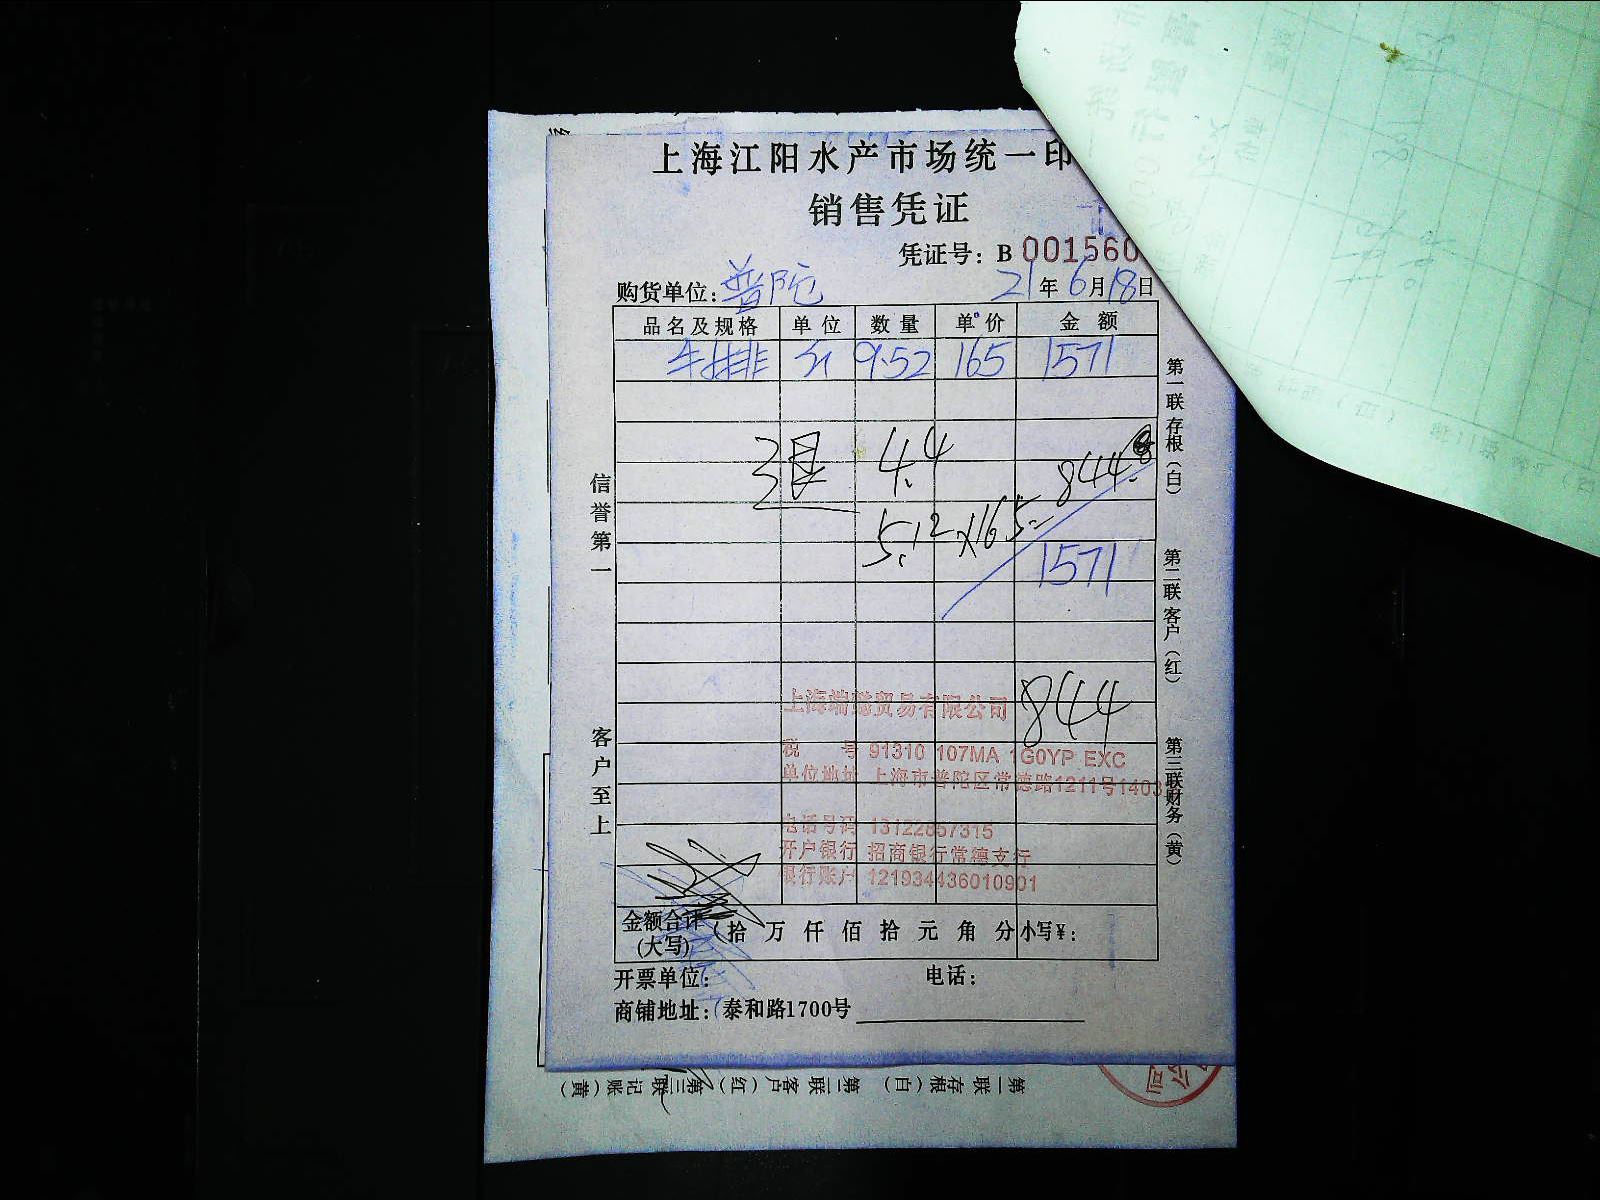 上海江阳水产市场统一印
销售凭证
凭证号：B 001560
购货单位：普陀 21年6月18日
品名及规格 单位 数量 单价 金额
牛排 斤 9.52 165 1571
退 4.4
844.8
5.12×165=
1571
844
上海端懿贸易有限公司
税 号 91310 107MA 1G0YP EXC
单位地址 上海市普陀区常德路1211号1403
电话号码 13122857315
开户银行 招商银行常德支行
银行账户 121934436010901
金额合计（大写） (拾 万 仟 佰 拾 元 角 分 小写¥：
开票单位： 电话：
商铺地址：泰和路1700号
信誉第一
客户至上
第一联 存根（白）
第二联 客户（红）
第三联 财务（黄）
第一联 存根（白） 第二联 客户（红） 第三联 记账（黄）